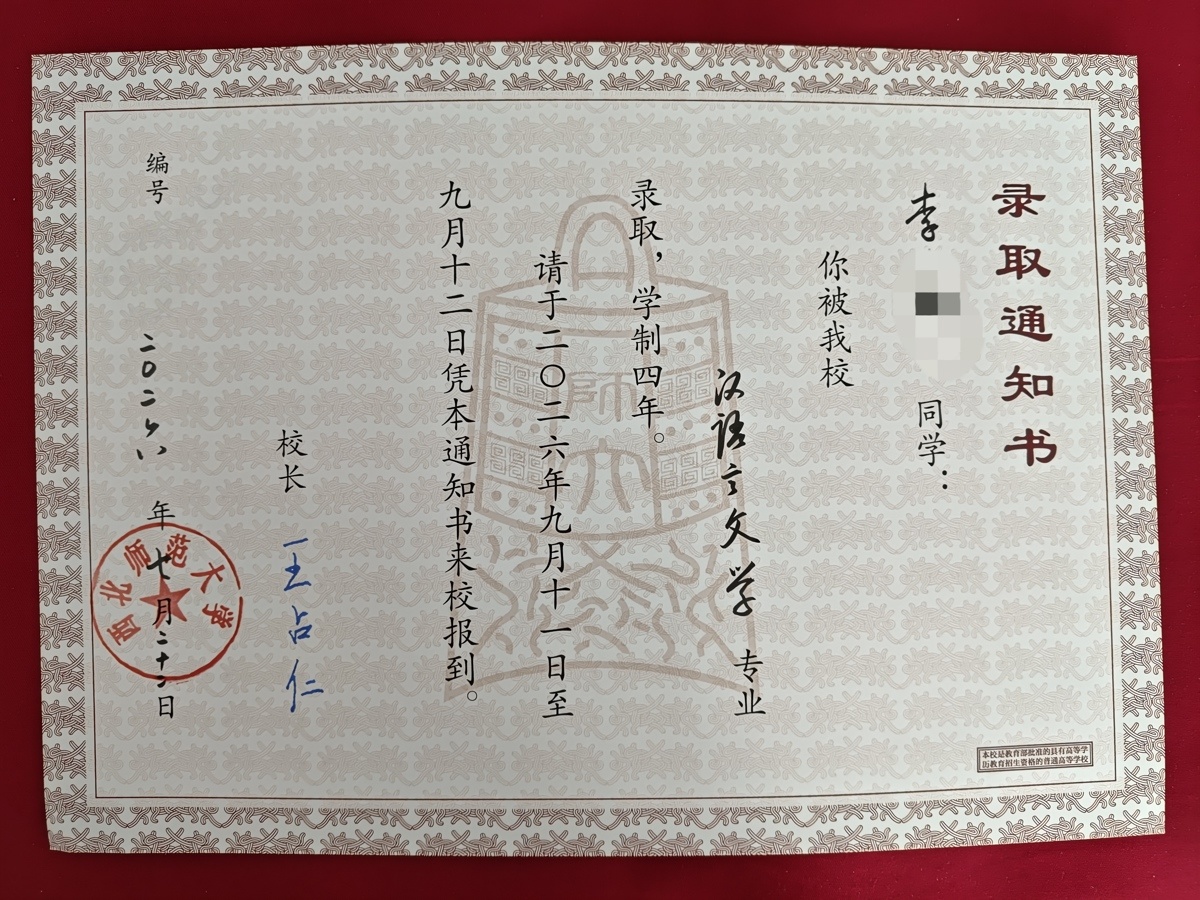 录取通知书
李
同学：
你被我校
汉语言文学 专业
录取，学制四年。
请于二〇二六年九月十一日至
九月十二日凭本通知书来校报到。
校长 王占仁
编号
二〇二六年七月二十二日
西北师范大学
师大
本校是教育部批准的具有高等学
历教育招生资格的普通高等学校